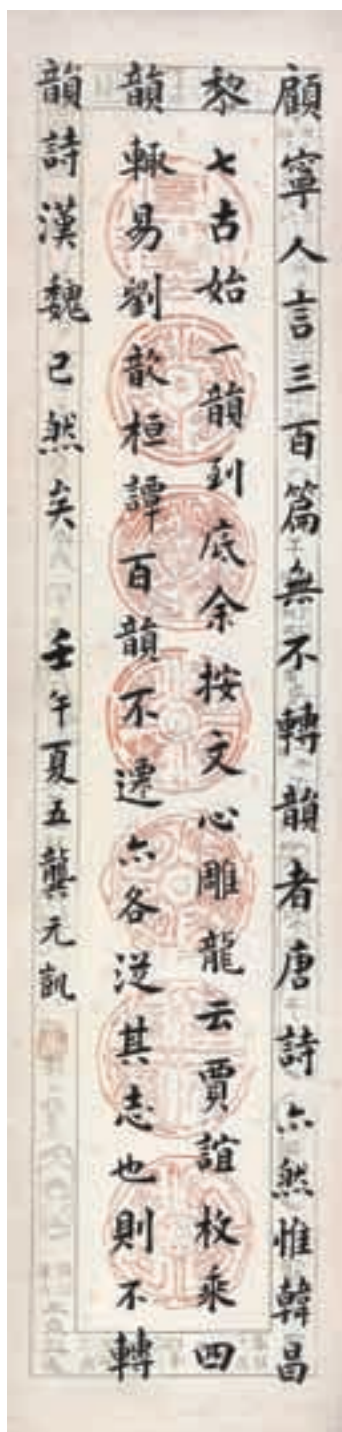 顧寧人言三百篇無不轉韻者唐詩亦然惟韓昌
黎七古始一韻到底余按文心雕龍云賈誼枚乘四
韻輒易劉歆桓譚百韻不遷亦各從其志也則不轉
韻詩漢魏已然矣 壬午夏五龔元凱